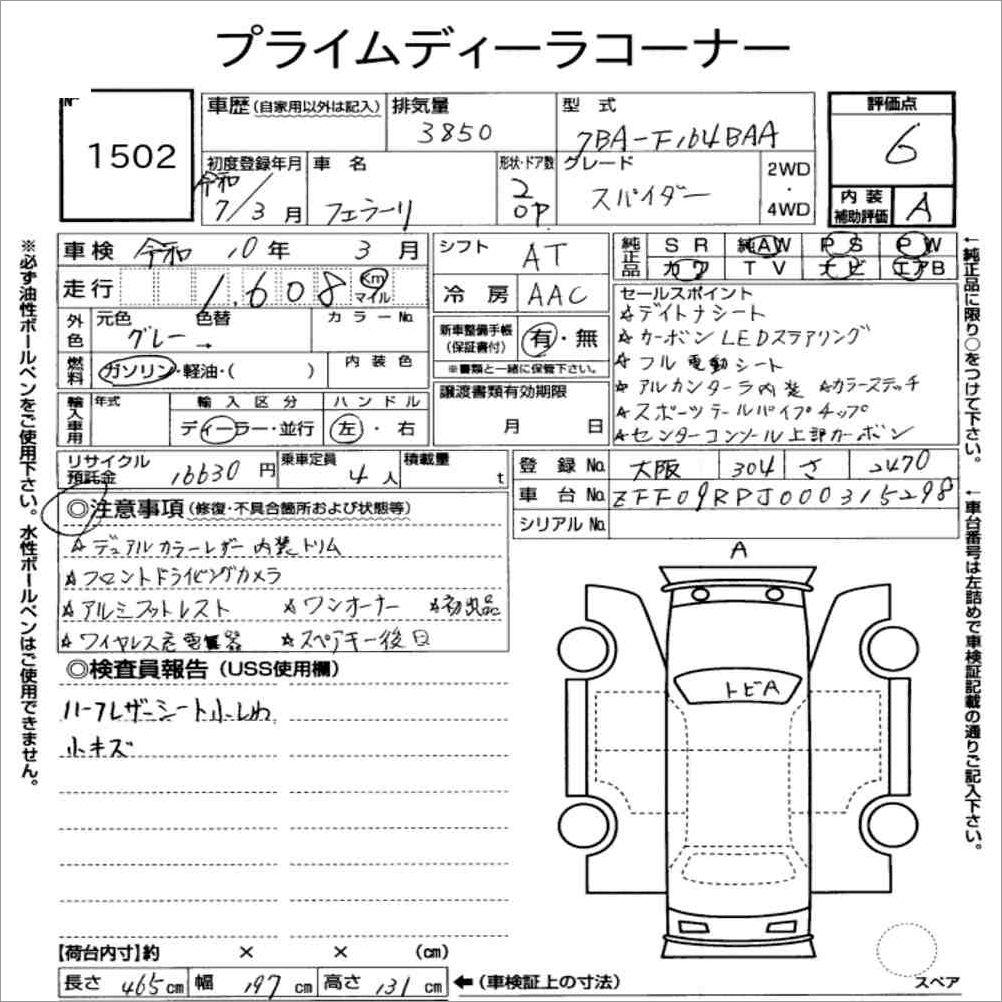 プライムディーラコーナー
№
1502
車歴(自家用以外は記入) 排気量 型式 評価点
3850 7BA-F164BAA 6
初度登録年月 車名 形状・ドア数 グレード 2WD・4WD
令和7/3月 フェラーリ 2 OP スパイダー
内装補助評価 A
車検 令和10年3月
シフト AT
純正品 SR 純AW PS PW
カワ TV ナビ エアB
走行 1,608 Km マイル
冷房 AAC
外色 元色 色替 カラーNo.
グレー →
新車整備手帳(保証書付) 有・無
※書類と一緒に保管下さい。
燃料 ガソリン・軽油・( ) 内装色
セールスポイント
☆デイトナシート
☆カーボンLEDステアリング
☆フル電動シート
☆アルカンターラ内装 ☆カラーステッチ
☆スポーツテールパイプチップ
☆センターコンソール上部カーボン
輸入車用 年式 輸入区分 ハンドル
ディーラー・並行 左・右
譲渡書類有効期限
月 日
リサイクル預託金 16630円 乗車定員 4人 積載量 t
登録No. 大阪 304 さ 2470
車台No. ZFF09RPJ000315298
シリアルNo.
◎注意事項(修復・不具合箇所および状態等)
☆デュアルカラーレザー内装トリム
☆フロントドライビングカメラ
☆アルミフットレスト ☆ワンオーナー ☆初出品
☆ワイヤレス充電器 ☆スペアキー後日
◎検査員報告(USS使用欄)
ハーフレザーシート小しわ
小キズ
A
トビA
スペア
【荷台内寸】約 × × (cm)
長さ 465cm 幅 197cm 高さ 131cm ←(車検証上の寸法)
※必ず油性ボールペンをご使用下さい。水性ボールペンはご使用できません。
←純正品に限り○をつけて下さい。
←車台番号は左詰めで車検証記載の通りご記入下さい。